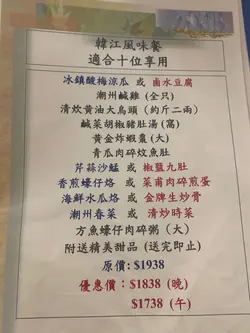 韓江風味餐
適合十位享用
冰鎮酸梅涼瓜 或 鹵水豆腐
潮州鹹雞 (全只)
清炆黃油大烏頭 (約斤二兩)
鹹菜胡椒豬肚湯 (窩)
黃金炸蝦棗 (大)
青瓜肉碎炆魚肚
芹蒜沙鯭 或 椒鹽九肚
香煎蠔仔烙 或 菜甫肉碎煎蛋
海鮮水瓜烙 或 金牌生炒骨
潮州春菜 或 清炒時菜
方魚蠔仔肉碎粥 (大)
附送精美甜品 (送完即止)
原價: $1938
優惠價: $1838 (晚)
$1738 (午)